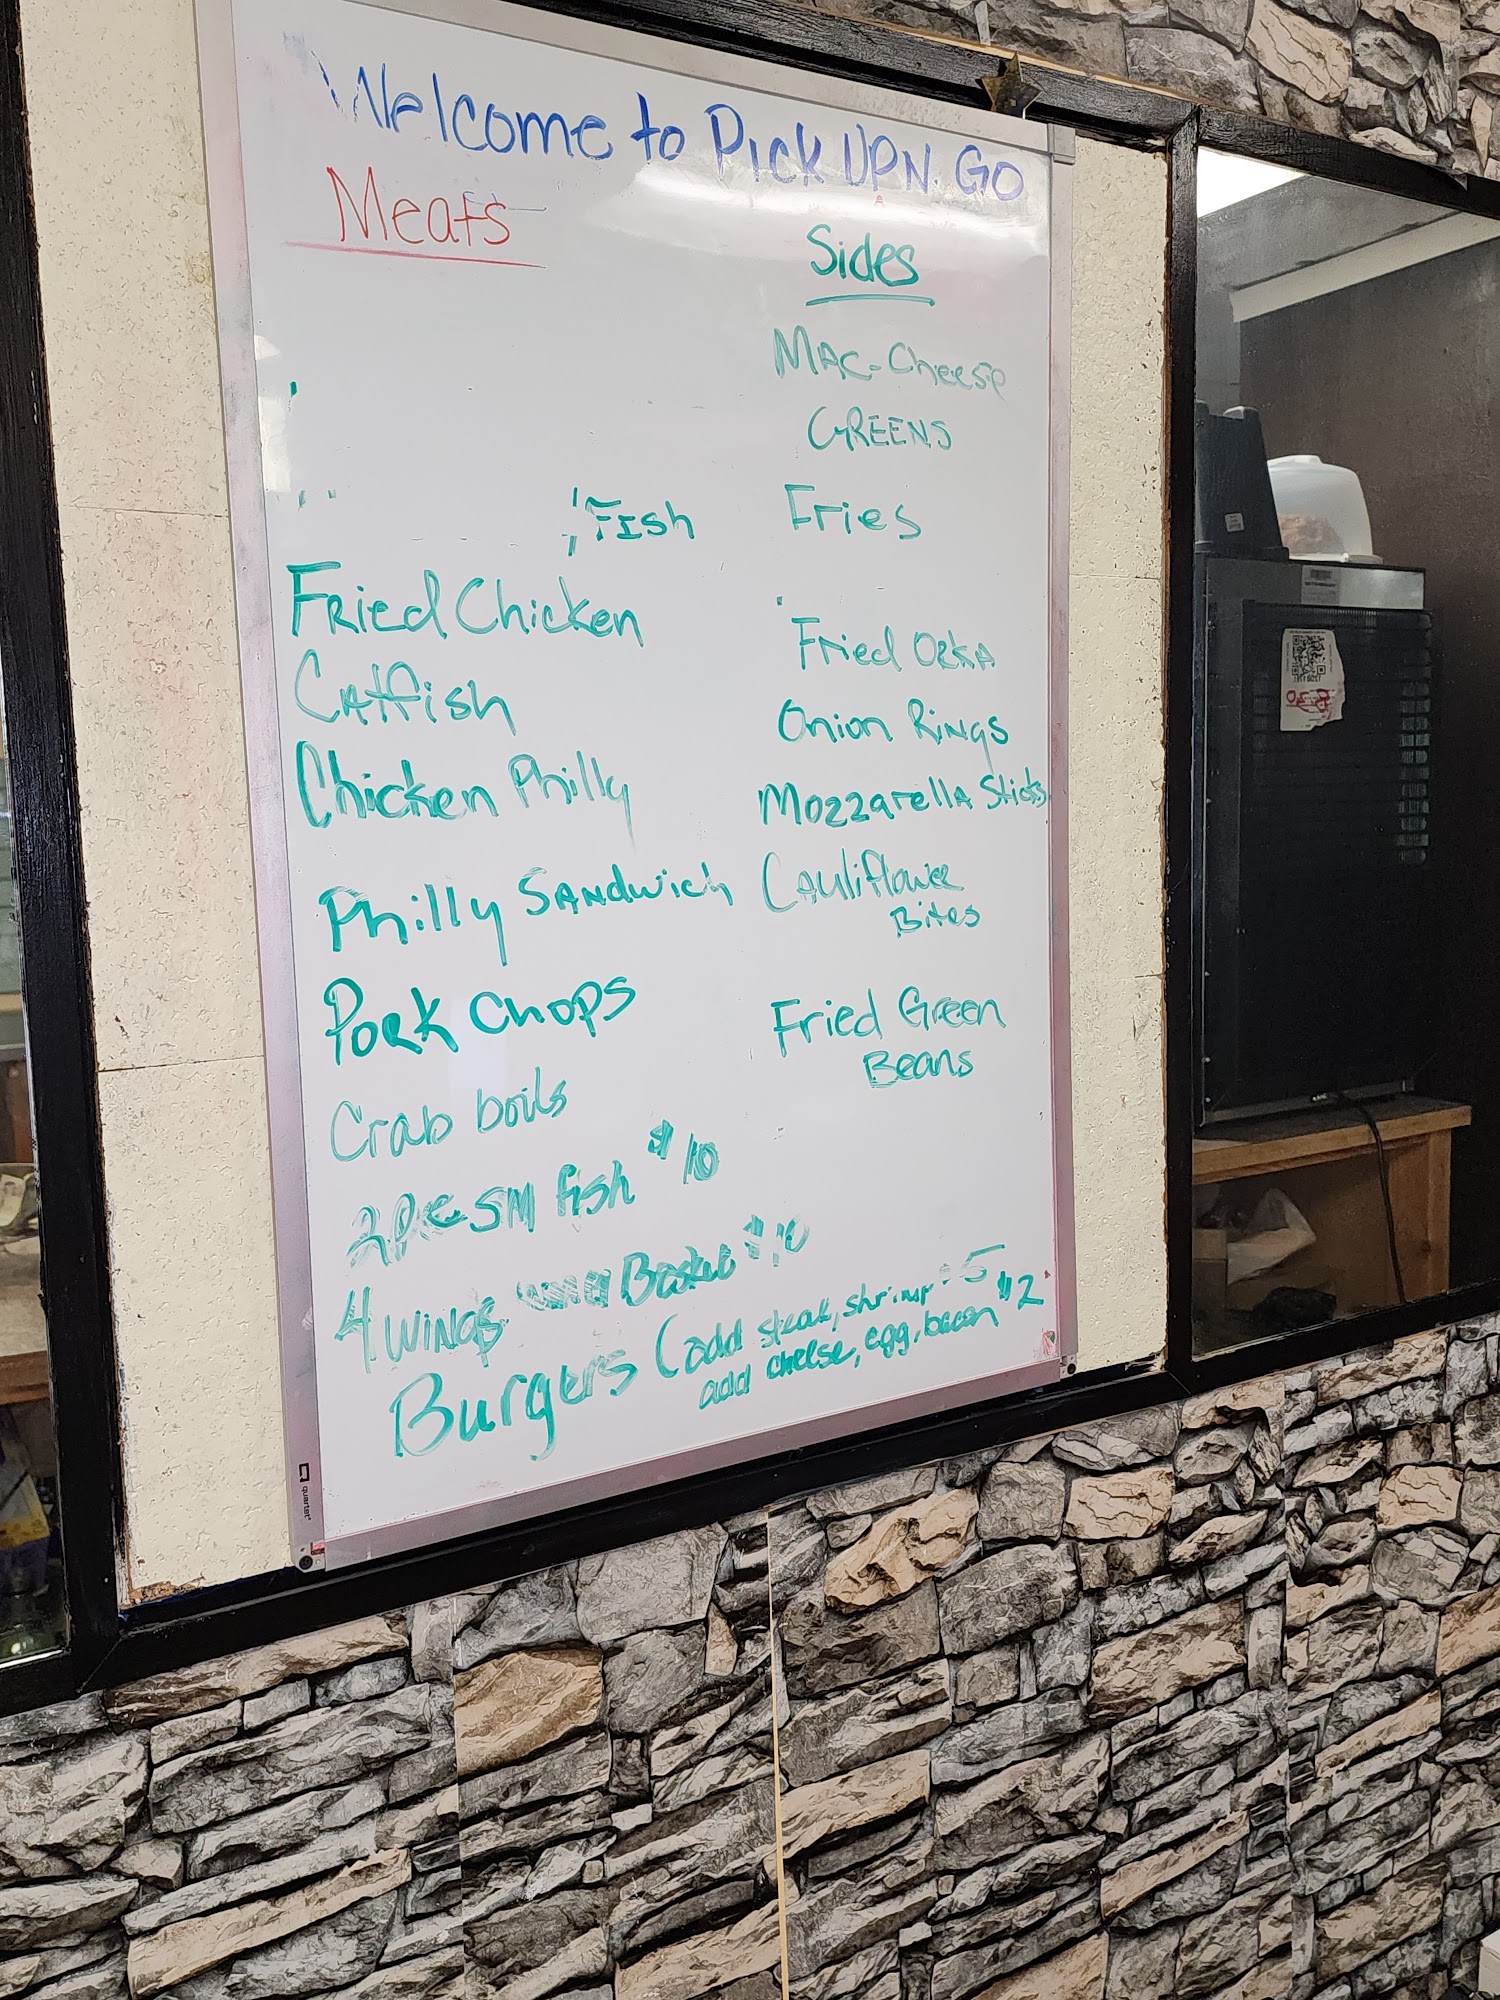 Welcome to Pick UPN. GO
Meats
Sides
MAC-Cheese
GREENS
Fish
Fries
Fried Chicken
Fried ORKA
Catfish
Onion Rings
Chicken Philly
Mozzarella Sticks
Philly SANdwich
Cauliflower
Bites
Pork Chops
Fried Green
Beans
Crab boils
SM fish $10
4 WINGS Basket $10
Burgers (add steak, shrimp $5
add cheese, egg, bacon $2
quartet